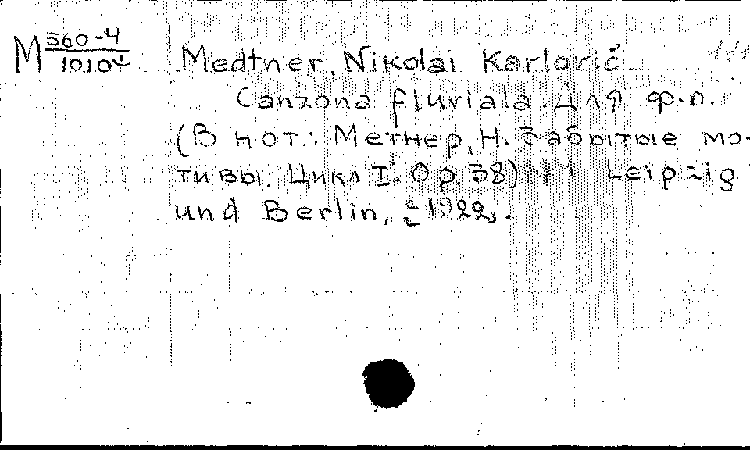 М 360-4
10104
Medtner, Nikolai Karlovič
Canzona fluviala. Для ф.п.
(В нот.: Метнер, Н. Забытые мо-
тивы. Цикл I. Op. 38) Leipzig
und Berlin, [1922].